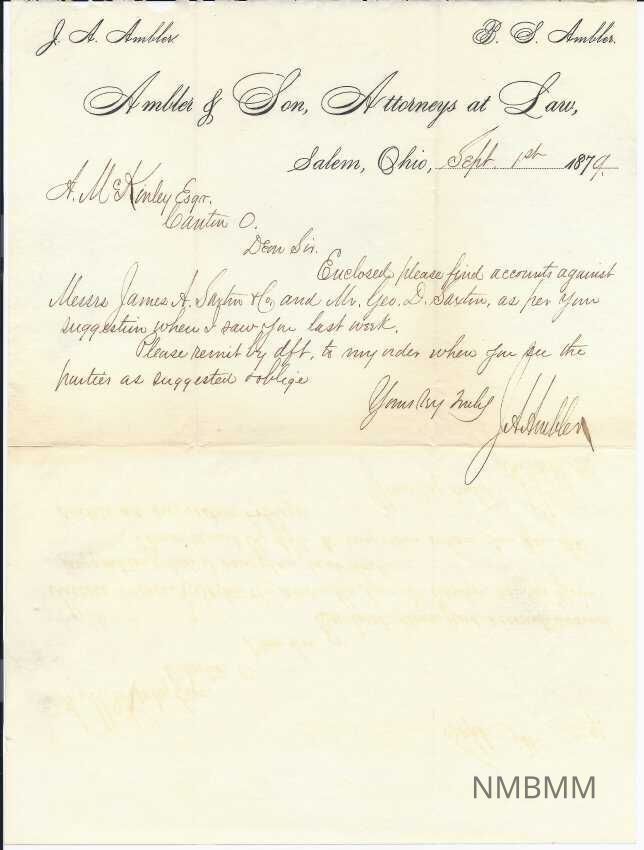 J. A. Ambler. B. S. Ambler.
Ambler & Son, Attorneys at Law,
Salem, Ohio, Sept. 1st 1879.
A. McKinley Esqr.
Canton O.
Dear Sir.
Enclosed please find accounts against
Messrs James A. Saxton & Co. and Mr. Geo. D. Saxton, as per your
suggestion when I saw you last week.
Please remit by dft. to my order when you see the
parties as suggested & oblige
Yours truly
J A Ambler
NMBMM